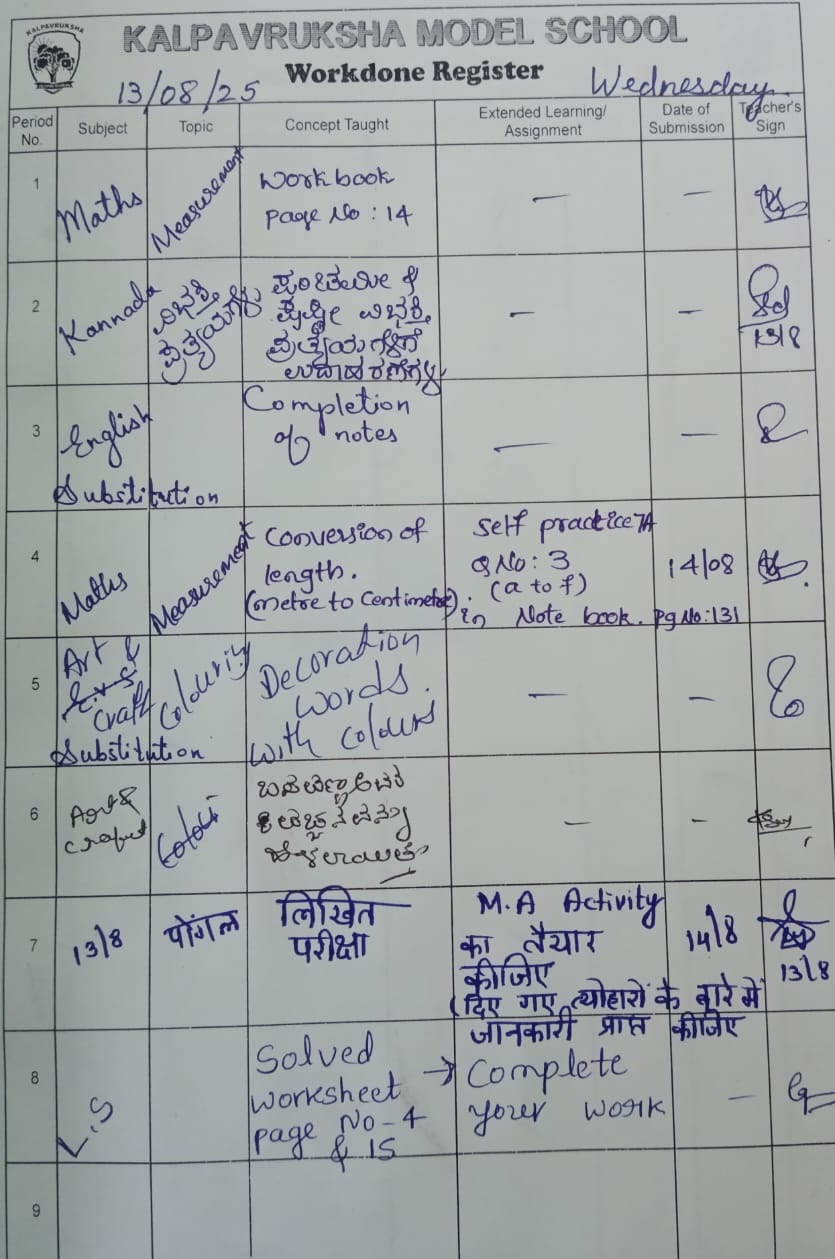 KALPAVRUKSHA
KALPAVRUKSHA MODEL SCHOOL
Workdone Register
13/08/25
Wednesday
Period No.
Subject
Topic
Concept Taught
Extended Learning/
Assignment
Date of
Submission
Teacher's
Sign
1
Maths
Measurement
Workbook
page No : 14
—
—
2
Kannada
ವಿಭಕ್ತಿ
ಪ್ರತ್ಯಯಗಳು
&
ವಿಭಕ್ತಿ
ಪ್ರತ್ಯಯಗಳಿಗೆ
ಉದಾಹರಣೆಗಳು
—
—
13/8
3
English
Substitution
Completion
of notes
—
—
4
Maths
Measurement
Conversion of
length.
(metre to Centimetre).
Self practice 7A
Q No: 3
(a to f)
in Note book. Pg No:131
14/08
5
Art &
E.V.S
Craft
Substitution
Colouring
Decoration
words.
with colours
—
—
6
Art &
Craft
Colour
—
—
7
13/8
पोंगल
लिखित
परीक्षा
M.A Activity
का तैयार
कीजिए
(दिए गए त्योहारों के बारे में
जानकारी प्राप्त कीजिए
14/8
13/8
8
L.S
Solved
worksheet
page No-4
& 15
→ Complete
your work
—
9